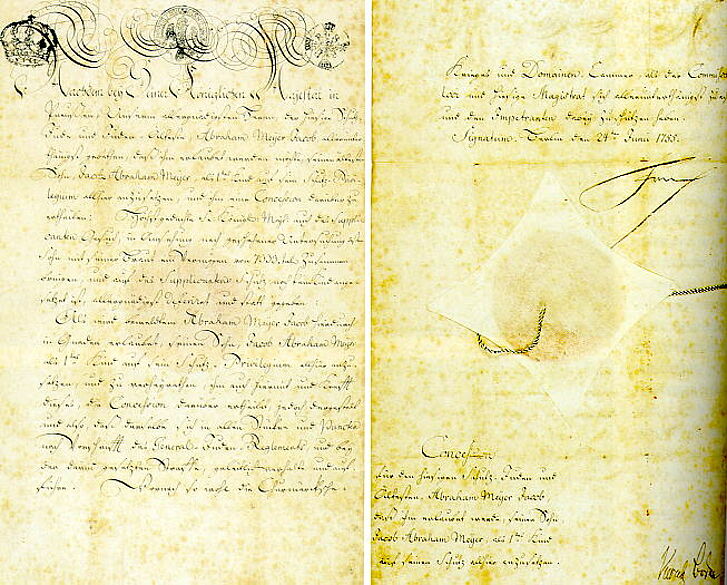 Nachdem bey Seiner Königlichen Majestät in
Preußen, Unserm allergnädigsten Herrn, der hiesige Schutz
Jude und Juden-Älteste, Abraham Meyer Jacob, allerunter
thänigst gebethen, daß ihm erlaubet werden möchte, seinen
Sohn, Jacob Abraham Meyer, als 1tes Kind auf sein Schutz-Privi
legium allhier anzusetzen, und ihm eine Concession darüber zu
ertheilen; Höchstgedachte Se. Königl. Mayt. auch des Suppli
canten Gesuch, in
Sohn mit seiner Braut ein Vermögen von 1000 tal. zusammen
bringen, und auf des Supplicanten Schutz noch kein Kind ange
setzet ist, allergnädigst deferiret und statt gegeben.
Als wird bemeldtem Abraham Meyer Jacob hierdurch
in Gnaden erlaubet, seinen Sohn, Jacob Abraham Meyer
als 1tes Kind auf sein Schutz-Privilegium allhier anzu
setzen, und zu verheyrathen, ihm auch hiermit und Krafft
dieses, die Concession darüber ertheilet, jedoch dergestalt
und also, daß derselbe sich in allen Stücken und Puncten
nach Vorschrifft des General-Juden-Reglements und bey
der darin gesetzten Straffe,
führe. Wornach sich die Churmärcksche
Krieges und Domainen Cammer, als der Commissa
und hiesige Magistrat sich allerunterthänigst
und den Impetranten dabey zu schützen haben.
Signatum. Berlin den 24ten Junii 1755.
Concession
für den hiesigen Schutz-Juden und
Ältesten, Abraham Meyer Jacob,
daß ihm erlaubet werde, seinen Sohn,
Jacob Abraham Meyer, als 1tes Kind
auf seinen Schutz allhier anzusetzen.